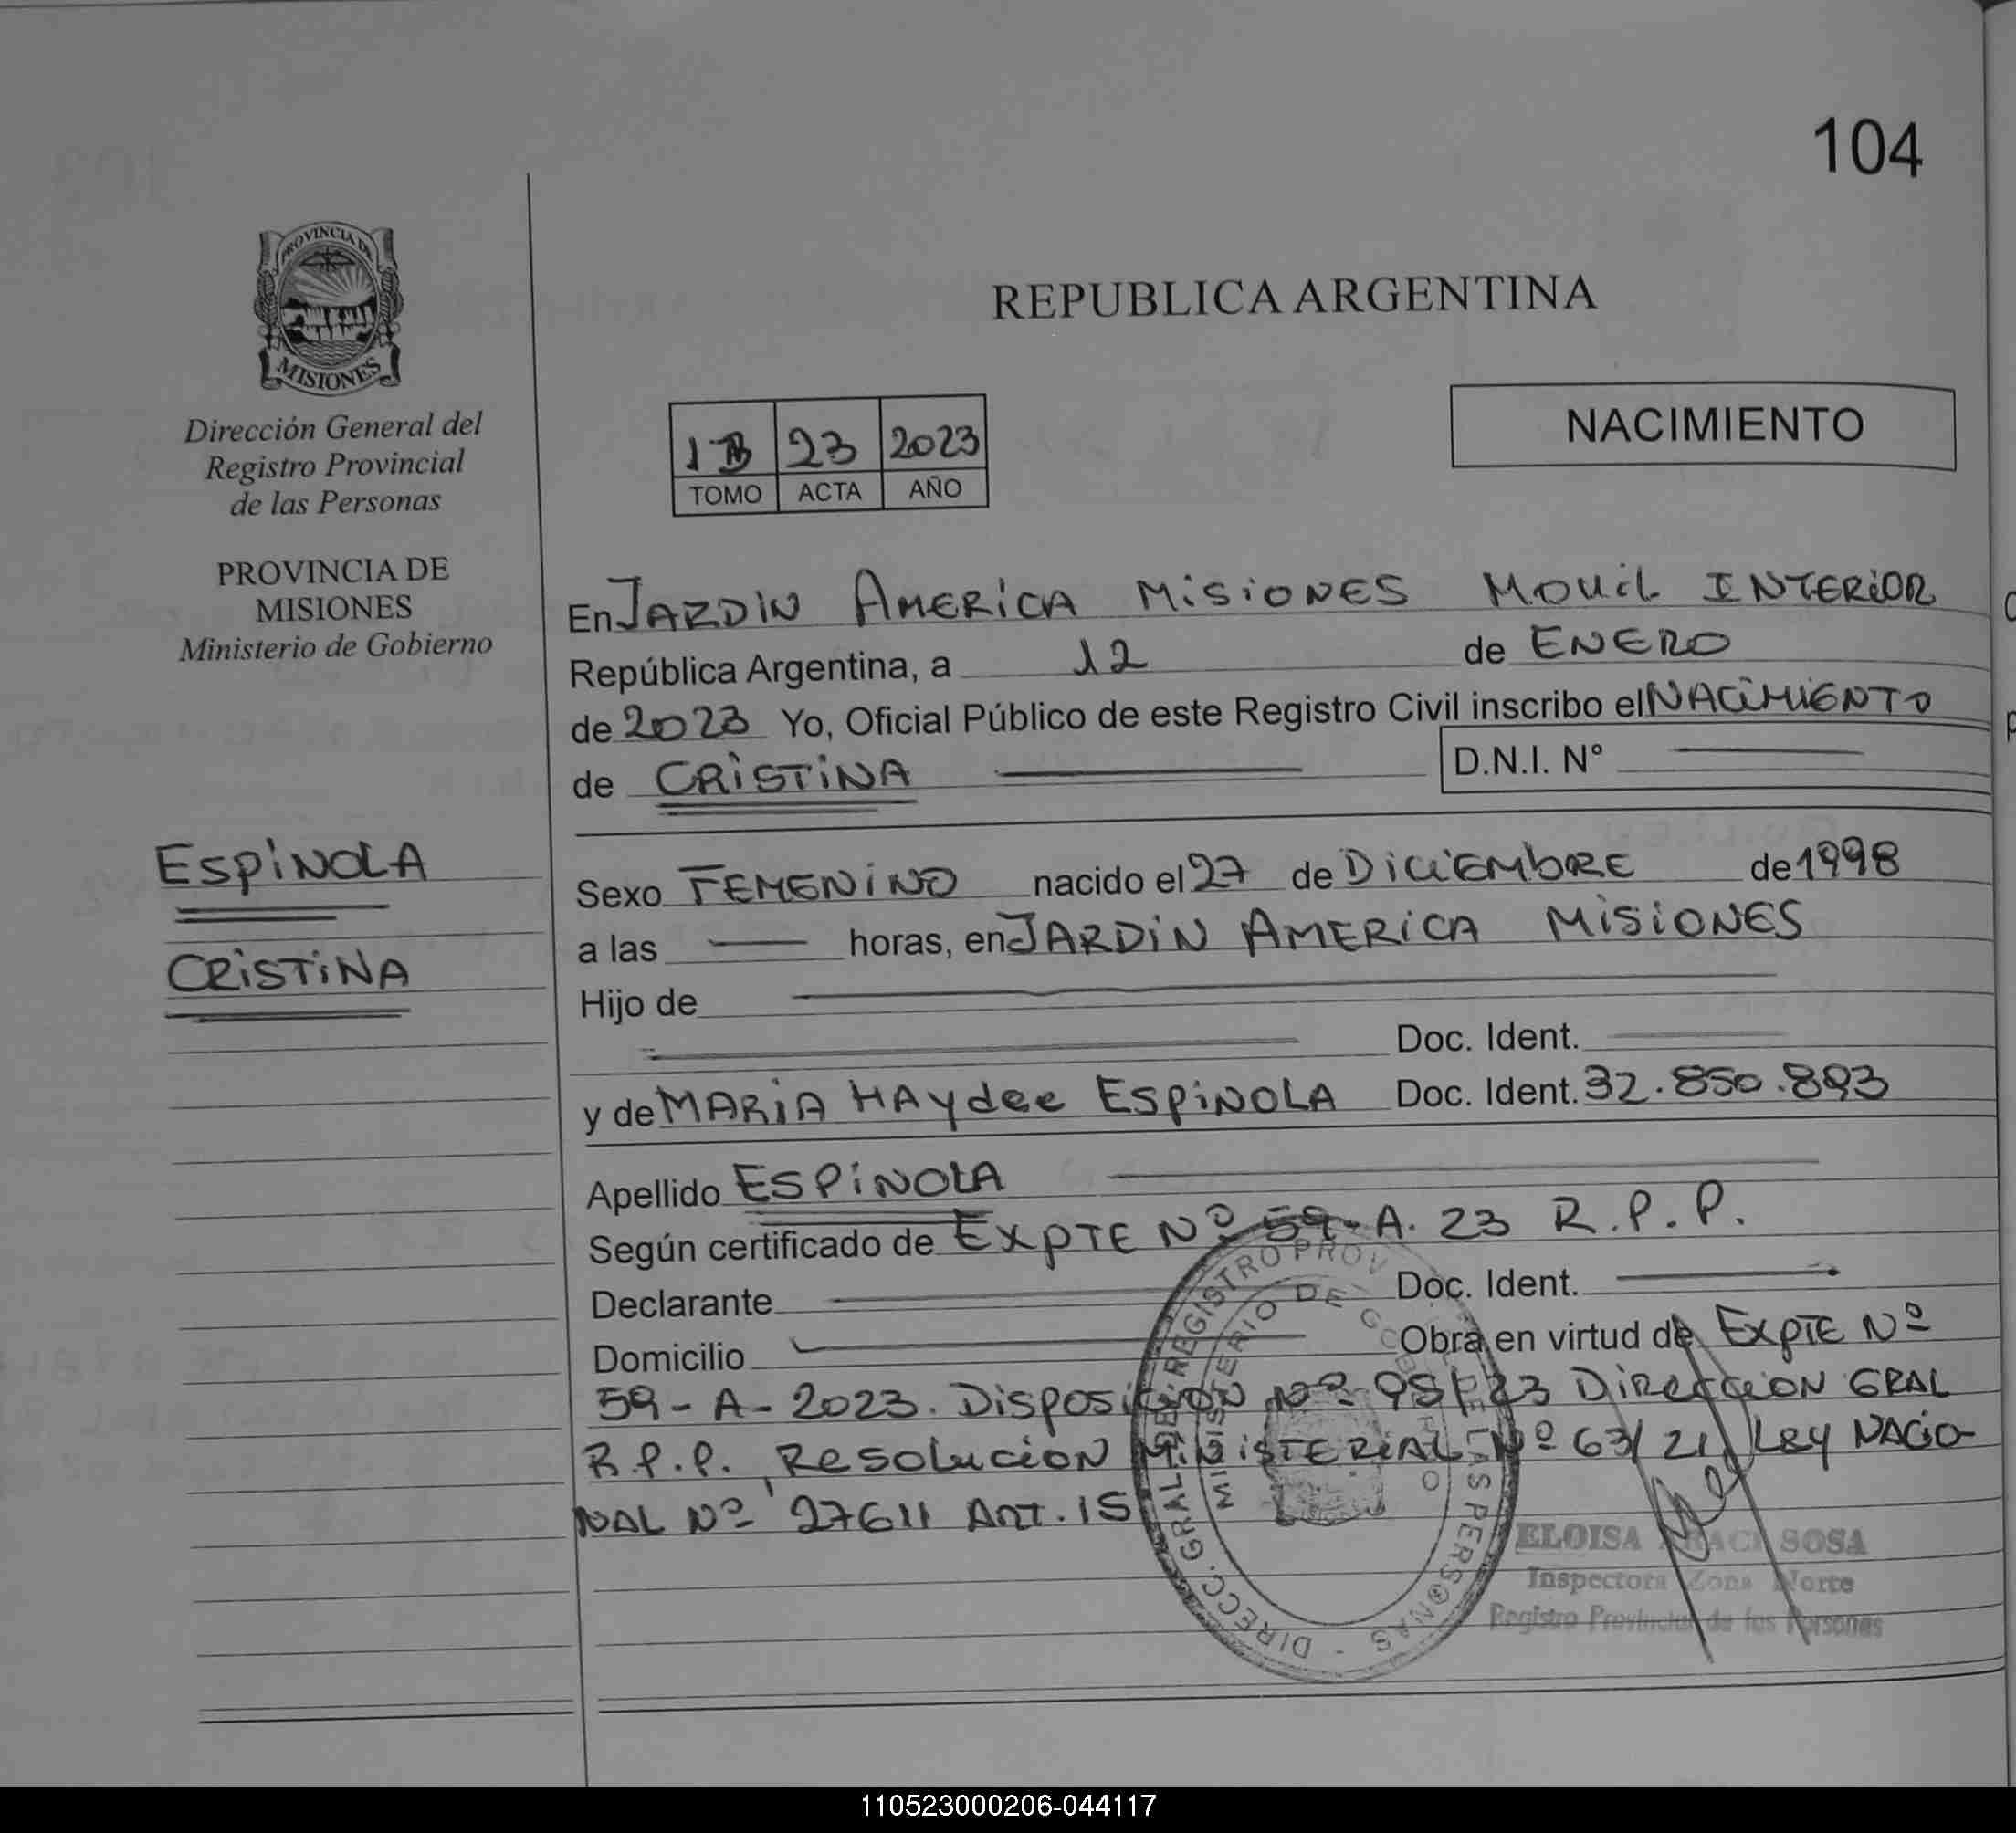 104
PROVINCIA DE
MISIONES
Dirección General del
Registro Provincial
de las Personas
PROVINCIA DE
MISIONES
Ministerio de Gobierno
ESPINOLA
CRISTINA
REPUBLICA ARGENTINA
1B 23 2023
TOMO ACTA AÑO
NACIMIENTO
En JARDIN AMERICA MISIONES MOVIL INTERIOR
República Argentina, a 12 de ENERO
de 2023 Yo, Oficial Público de este Registro Civil inscribo el NACIMIENTO
de CRISTINA D.N.I. N°
Sexo FEMENINO nacido el 27 de DICIEMBRE de 1998
a las horas, en JARDIN AMERICA MISIONES
Hijo de
Doc. Ident.
y de MARIA HAYDEE ESPINOLA Doc. Ident. 32.850.893
Apellido ESPINOLA
Según certificado de EXPTE Nº 59-A. 23 R.P.P.
Declarante Doc. Ident.
Domicilio Obra en virtud de EXPTE Nº
59-A-2023. DISPOSICION Nº 95/23 DIRECCION GRAL
R.P.P., RESOLUCION MINISTERIAL Nº 63/21, LEY NACIO-
NAL Nº 27611 ART. 15
DIRECC. GRAL. DEL REGISTRO PROV. DE LAS PERSONAS
MINISTERIO DE GOBIERNO
ELOISA SOSA
Inspectora Zona Norte
Registro Provincial de las Personas
110523000206-044117